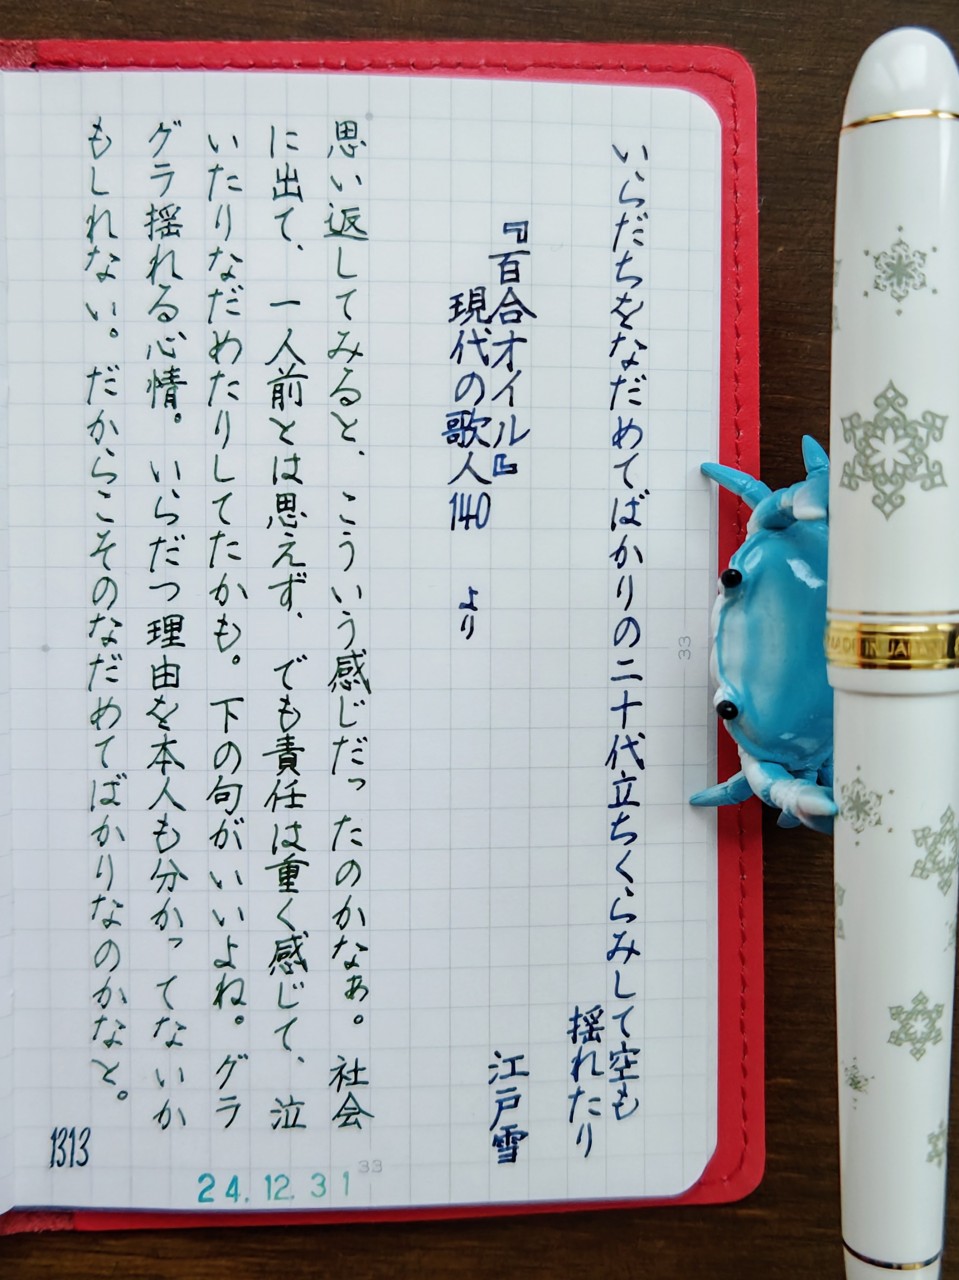 いらだちをなだめてばかりの二十代立ちくらみして空も
揺れたり
江戸雪
『百合オイル』
現代の歌人140 より
思い返してみると、こういう感じだったのかなぁ。社会
に出て、一人前とは思えず、でも責任は重く感じて、泣
いたりなだめたりしてたかも。下の句がいいよね。グラ
グラ揺れる心情。いらだつ理由を本人も分かってないか
もしれない。だからこそのなだめてばかりなのかなと。
1313
24.12.31
33
33
MADE IN JAPAN